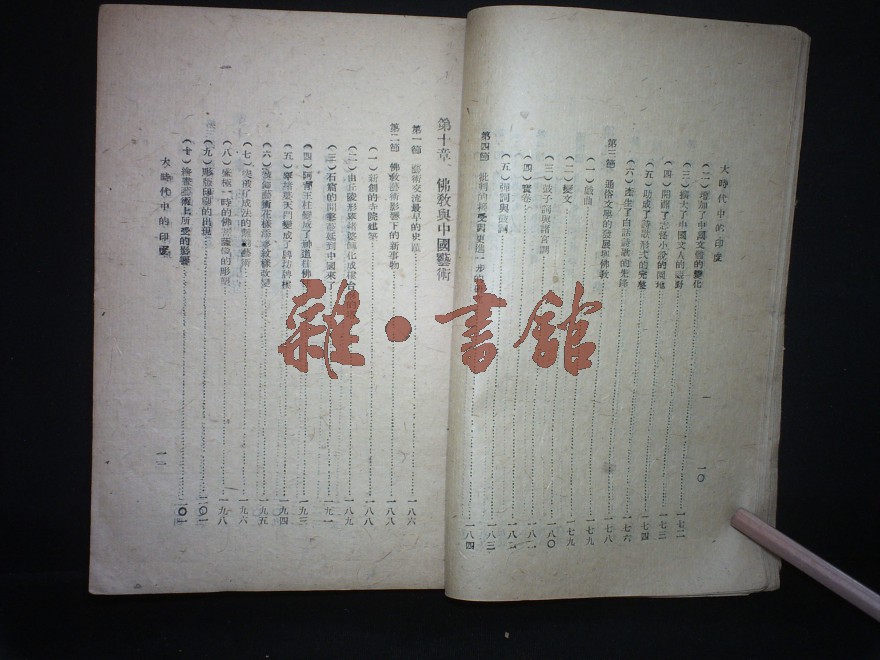 大時代中的印度
一〇
(二)增加了中國文體的變化
(三)擴大了中國文人的
一七二
(四)開闢了志怪小說的園地
一七三
(五)助成了詩歌形式的完整
一七四
(六)產生了白話詩歌的先鋒
一七六
第三節 通俗文學的發展與佛教
一七八
(一)戲曲
一七九
(二)變文
一七九
(三)鼓子詞與諸宮調
一八〇
(四)寶卷
一八一
(五)彈詞與鼓詞
一八三
第四節 批判的接受與更進一步的
一八四
第十章 佛教與中國藝術
第一節 藝術交流最早的史蹟
一八六
第二節 佛教藝術影響下的新事物
一八八
(一)新創的寺院建築
一八八
(二)由丘陵形窣堵婆變化成樓台
一八九
(三)石窟的開鑿蔓延到中國來了
一九一
(四)阿育王柱變成了神道柱
一九三
(五)窣堵婆天門變成了牌坊牌樓
一九四
(六)裝飾藝術花樣
一九五
(七)突破了成法的
藝術
一九六
(八)盛極一時的佛菩薩像的彫塑
一九八
(九)彫版印刷的出現
二〇一
(十)繪畫藝術上所受的影響
大時代中的印度
一一
雜·書館